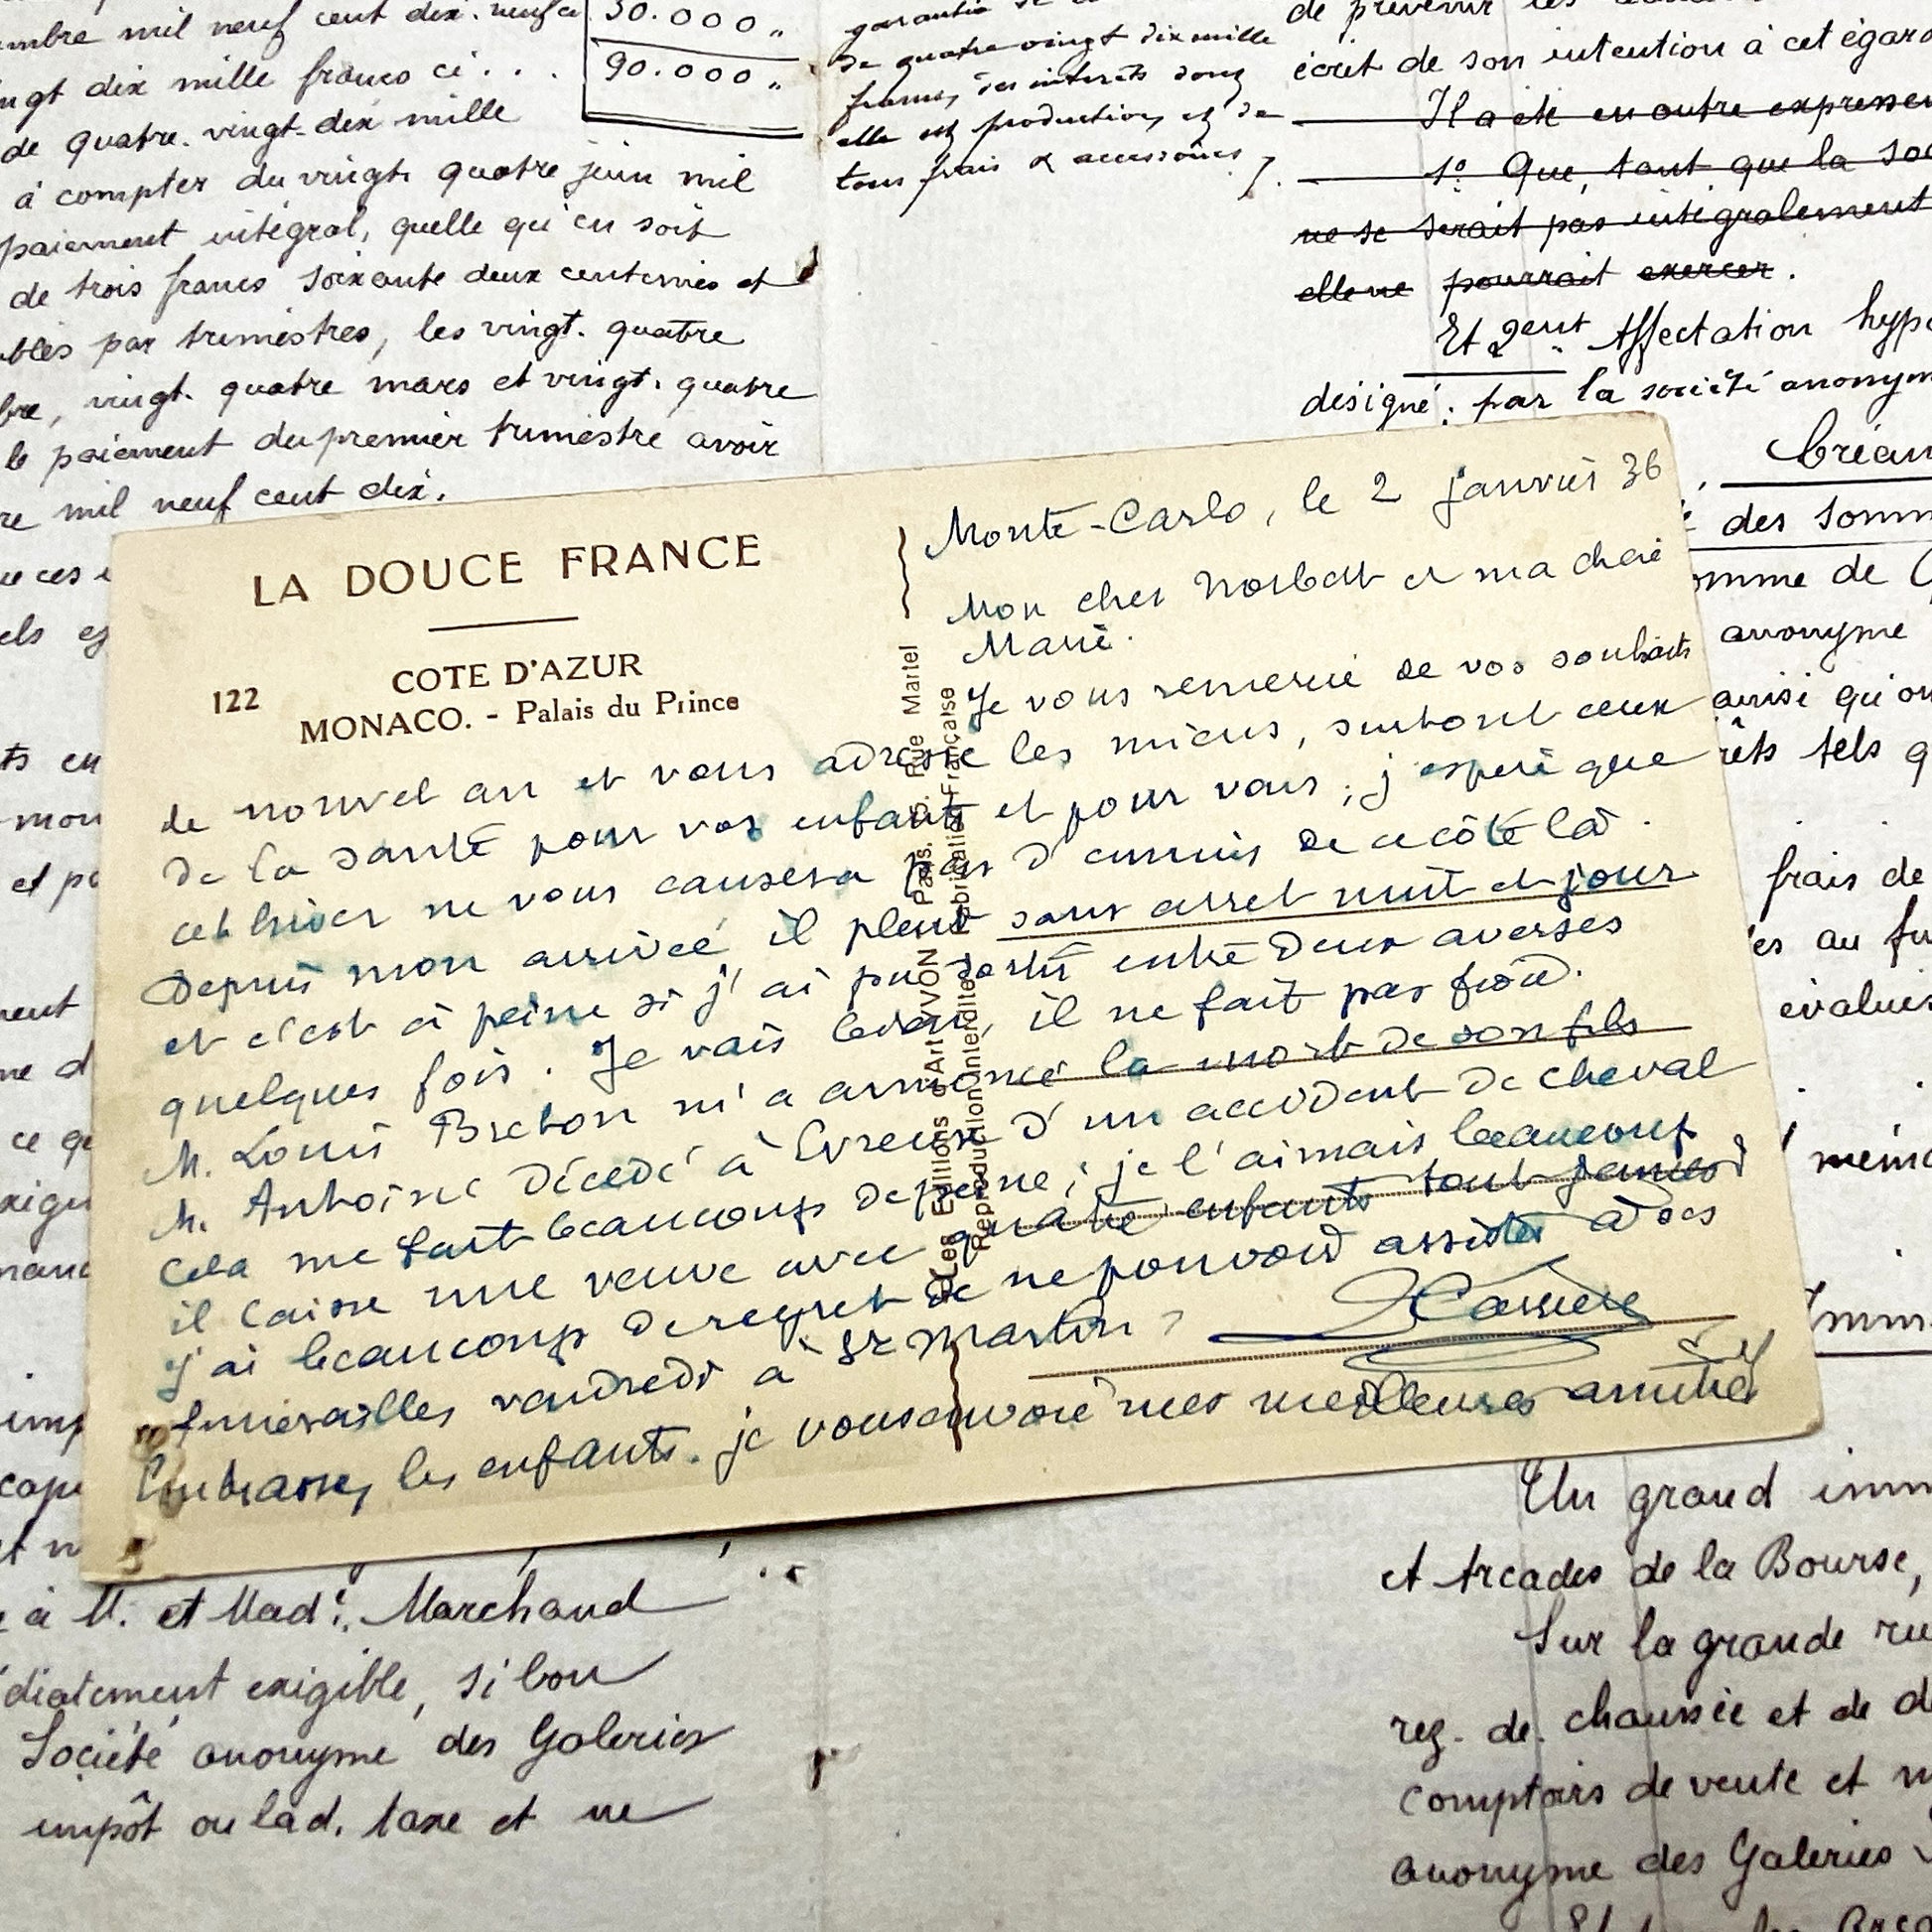 mbre mil neuf cent dix. neuf ci
ngt dix mille francs ci . . .
de quatre. vingt. dix mille
à compter du vingt. quatre juin mil
paiement intégral, quelle qu'en soit
de trois francs soixante deux centimes et
bles par trimestres, les vingt. quatre
bre, vingt. quatre mars et vingt. quatre
le paiement du premier trimestre avoir
re mil neuf cent dix.
30.000 "
90.000 "
garantie
de quatre vingt dix mille
francs, des intérêts dont
elle est production, et de
tous frais & accessoires
de prévenir les
écrit de son intention à cet égard
Il a été en outre expressé
1º Que, tant que la soc
ne se serait pas intégralement
elle ne pourrait exercer.
Et 2ent Affectation hypo
désigné : par la société anonym
Créan
des somm
omme de
anonyme
ainsi qu'on
rêts tels q
frais de
es au fu
évalués
même
Imm
LA DOUCE FRANCE
122
COTE D'AZUR
MONACO. - Palais du Prince
Les Editions d'Art YVON Paris. 15. Rue Martel
Reproduction interdite Fabrication Française
Monte-Carlo, le 2 janvier 36
Mon cher Norbert et ma chère
Marie.
Je vous remercie de vos souhaits
de nouvel an et vous adresse les miens, surtout ceux
de la santé pour vos enfants et pour vous ; j'espère que
cet hiver ne vous causera pas d'ennuis de ce côté là.
Depuis mon arrivée il pleut sans arret nuit et jour
et c'est à peine si j'ai pu sortir entre deux averses
quelques fois. Je vais bien, il ne fait pas froid.
M. Louis Breton m'a annoncé la mort de son fils
M. Antoine décédé à Evreux d'un accident de cheval
Cela me fait beaucoup de peine ; je l'aimais beaucoup
il laisse une veuve avec quatre enfants tout jeunes
j'ai beaucoup de regret de ne pouvoir assister à ses
funerailles vendredi à St Martin
Embrassez les enfants. je vous envoie mes meilleures amitiés
à M. et Made. Marchand
diatement exigible, si bon
Société anonyme des Galeries
impôt ou lad. taxe et ne
Un grand imm
et Arcades de la Bourse,
Sur la grande ru
rez. de. chaussée et de d
comptoirs de vente et m
anonyme des Galeries